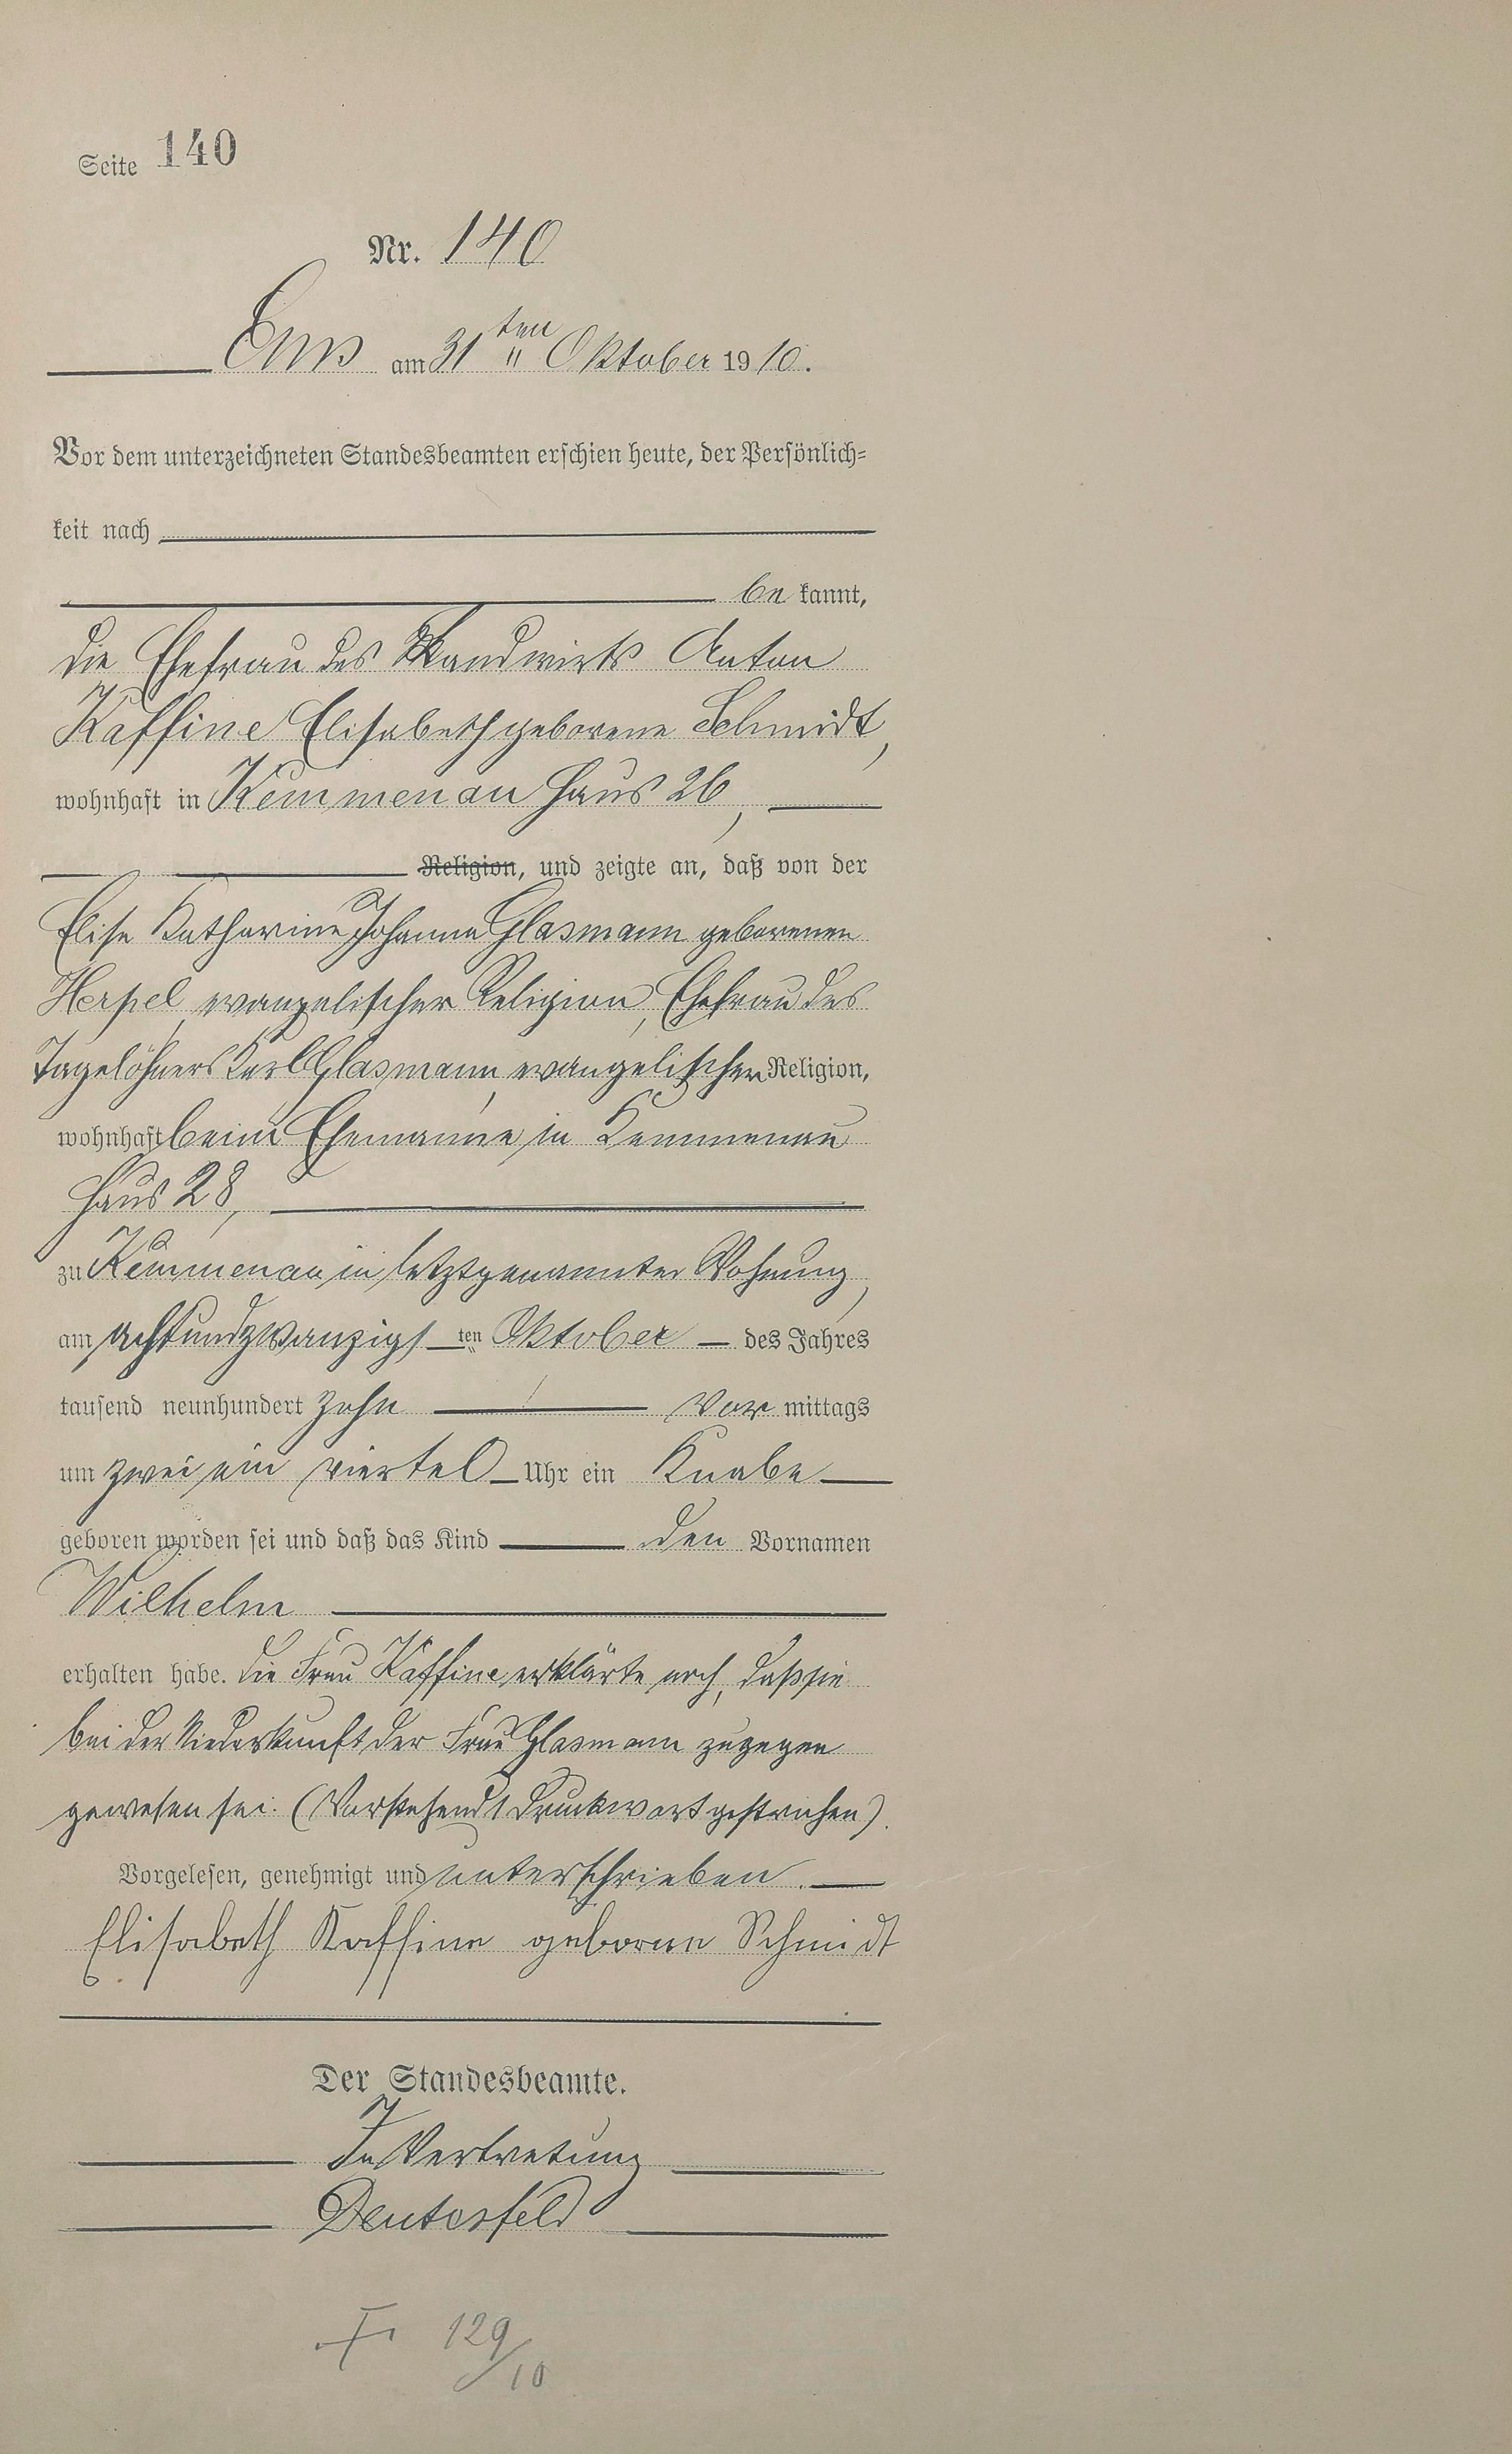 Seite 140
Nr. 140
Ems am 31ten Oktober 1910.
Vor dem unterzeichneten Standesbeamten erschien heute, der Persönlich-
keit nach
be kannt,
die Ehefrau des Landwirts Anton
Kaffine Elisabeth geborene Schmidt,
wohnhaft in Kemmenau Haus 26,
Religion, und zeigte an, daß von der
Elise Katharine Johanna Glasmann geborenen
Herpel, evangelischer Religion, Ehefrau des
Tagelöhners Karl Glasmann, evangelischer Religion,
wohnhaft beim Ehemanne in Kemmenau
Haus 28,
zu Kemmenau in letztgenannter Wohnung,
am achtundzwanzigsten Oktober des Jahres
tausend neunhundert zehn Vor mittags
um zwei ein viertel Uhr ein Knabe
geboren worden sei und daß das Kind den Vornamen
Wilhelm
erhalten habe. Die Frau Kaffine erklärte noch, daß sie
bei der Niederkunft der Frau Glasmann zugegen
gewesen sei. (Vorstehend 1 Druckwort gestrichen).
Vorgelesen, genehmigt und unterschrieben.
Elisabeth Kaffine geborene Schmidt
Der Standesbeamte.
In Vertretung
Deutesfeld
129/10